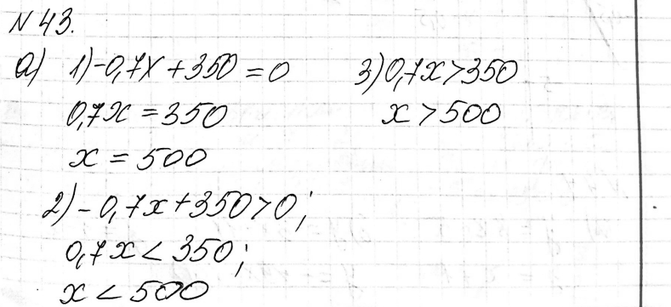 N 43.
а) 1) -0,7x + 350 = 0
0,7x = 350
x = 500
2) - 0,7x + 350 > 0;
0,7x < 350;
x < 500
3) 0,7x > 350
x > 500